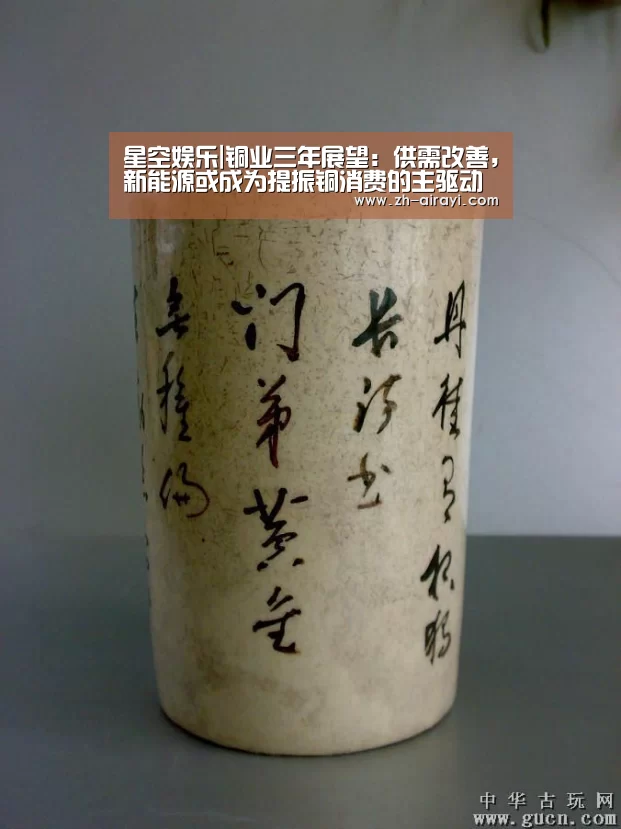 星空娱乐|铜业三年展望：供需改善，
新能源或成为提振铜消费的主驱动
www.zh-airayi.com
丹桂有根独
长诗书
门第黄金
無種偏
中华古玩网
www.gucn.com